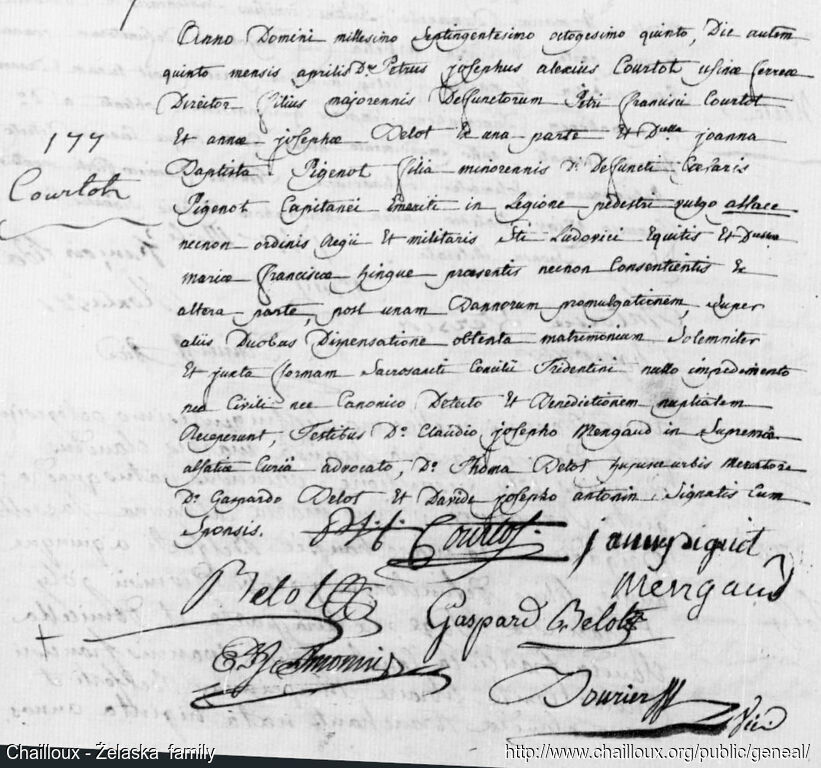 Anno Domini millesimo Septingentesimo octogesimo quinto, Die autem
quinto mensis aprilis D. Petrus josephus alexius Courtot usinæ ferreæ
Director filius majorennis Deffunctorum Petri francisci Courtot
177
Et annæ josephæ Belot Ex una parte Et D. joanna
Courtot
Baptista Pigenot filia minorennis Deffuncti Cæsaris
Pigenot Capitanei Emeriti in Legione pedestri vulgo alsace
necnon ordinis Regii Et militaris Sti Ludovici Equitis Et
mariæ franciscæ hinque præsentis necnon Consentientis Ex
altera parte, post unam Bannorum promulgationem, Super
aliis Duobus Dispensatione obtenta matrimonium Solemniter
Et juxta formam Sacrosancti Concilii Tridentini nullo impedimento
nec Civili nec Canonico Detecto Et Benedictionem nuptialem
Receperunt, Testibus D. Claudio josepho Mengaud in Suprema
alsatiæ Curia advocato, D. Thoma Belot hujusce urbis Mercatore
D. Gaspardo Belot Et Davide josepho antonin Signatis Cum
Sponsis.
Courtot
Belot
Mengaud
Gaspard Belot
Bourier
Chailloux - Żelaska family
http://www.chailloux.org/public/geneal/